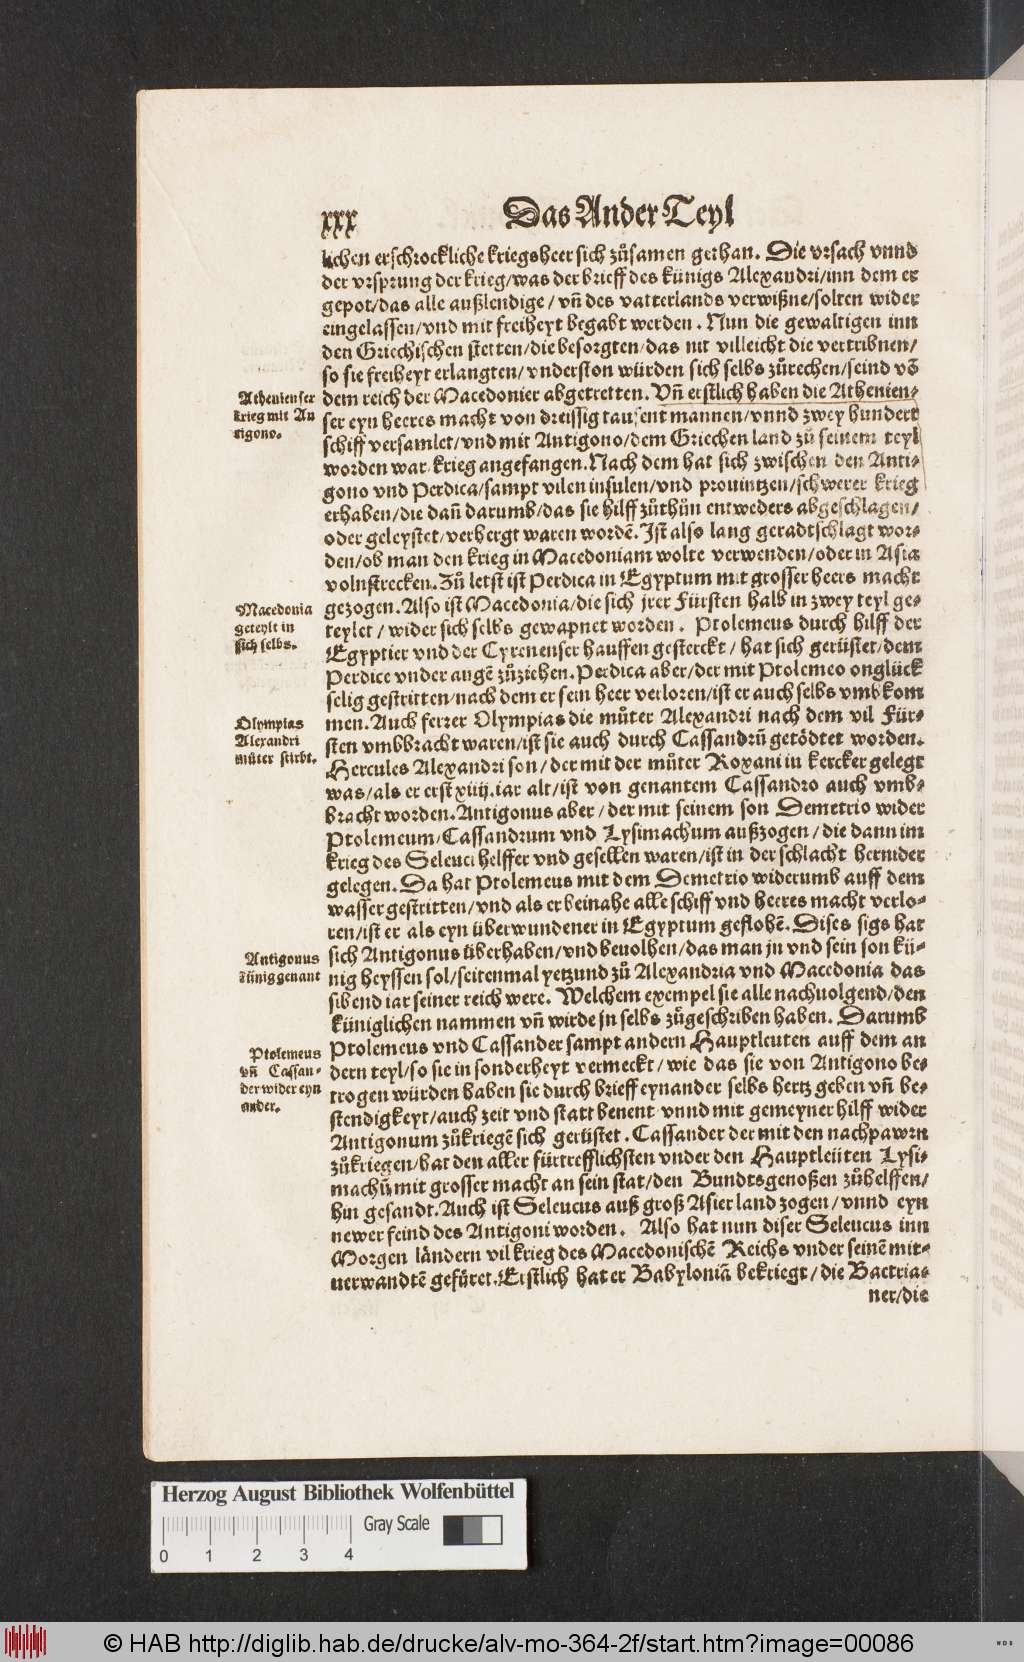 xxx
Das Ander Teyl
lichen erschrockliche kriegsheer sich zůsamen gethan. Die vrsach vnnd
der vrsprung der krieg/was der brieff des künigs Alexandri/inn dem er
gepot/das alle außlendige / vñ des vatterlands verwißne/solten wider
eingelassen/vnd mit freiheyt begabt werden. Nun die gewaltigen inn
den Griechischen stetten/die besorgten/das nit villeicht die vertribnen/
so sie freiheyt erlangten/ vnderston würden sich selbs zůrechen/seind võ
dem reich der Macedonier abgetretten. Vñ erstlich haben die Athenien-
ser eyn heeres macht von dreissig tausent mannen/vnnd zwey hundert
schiff versamlet/vnd mit Antigono/dem Griechen land zů seinem teyl
worden war/krieg angefangen. Nach dem hat sich zwischen den Anti-
gono vnd Perdica/sampt vilen insulen/vnd prouintzen/schwerer krieg
erhaben/die dañ darumb/das sie hilff zůthůn entweders abgeschlagen/
oder geleystet/verhergt waren wordē. Ist also lang geradtschlagt wor-
den/ob man den krieg in Macedoniam wolte verwenden/oder in Asia
volnstrecken. Zů letst ist Perdica in Egyptum mit grosser heers macht
gezogen. Also ist Macedonia/die sich jrer Fürsten halb in zwey teyl ge-
teylet / wider sich selbs gewapnet worden. Ptolemeus durch hilff der
Egyptier vnd der Cyrenenser hauffen gesterckt / hat sich gerüstet/dem
Perdice vnder augē zůziehen. Perdica aber/der mit Ptolemeo onglück
selig gestritten/nach dem er sein heer verloren/ist er auch selbs vmbkom
men. Auch ferrer Olympias die můter Alexandri nach dem vil Für-
sten vmbbracht waren/ist sie auch durch Cassandrū getödtet worden.
Hercules Alexandri son/der mit der můter Roxani in kercker gelegt
was/als er erst xiiij.iar alt/ist von genantem Cassandro auch vmb-
bracht worden. Antigonus aber / der mit seinem son Demetrio wider
Ptolemeum/Cassandrum vnd Lysimachum außzogen / die dann im
krieg des Seleuci helffer vnd gesellen waren/ist in der schlacht hernider
gelegen. Da hat Ptolemeus mit dem Demetrio widerumb auff dem
wasser gestritten/vnd als er beinahe alle schiff vnd heeres macht verlo-
ren/ist er als eyn überwundener in Egyptum geflohē. Dises sigs hat
sich Antigonus überhaben/vnd beuolhen/das man jn vnd sein son kü-
nig heyssen sol/seitenmal yetzund zů Alexandria vnd Macedonia das
sibend iar seiner reich were. Welchem exempel sie alle nachuolgend/den
küniglichen nammen vñ wirde jn selbs zůgeschriben haben. Darumb
Ptolemeus vnd Cassander sampt andern Hauptleuten auff dem an
dern teyl/so sie in sonderheyt vermeckt/ wie das sie von Antigono be-
trogen würden haben sie durch brieff eynander selbs hertz geben vñ be-
stendigkeyt/auch zeit vnd statt benent vnnd mit gemeyner hilff wider
Antigonum zůkriegē sich gerüstet. Cassander der mit den nachpawrn
zůkriegen/hat den aller fürtrefflichsten vnder den Hauptleüten Lysi-
machū mit grosser macht an sein stat/den Bundtsgenoßen zůhelffen/
hin gesandt. Auch ist Seleucus auß groß Asier land zogen / vnnd eyn
newer feind des Antigoni worden. Also hat nun diser Seleucus inn
Morgen ländern vil krieg des Macedonischē Reichs vnder seinē mit-
uerwandtē gefüret. Erstlich hat er Babyloniā bekriegt/ die Bactria-
ner/die
Athenienser
krieg mit An
tigono.
Macedonia
geteylt in
sich selbs.
Olympias
Alexandri
můter stirbt.
Antigonus
Künig genant
Ptolemeus
vñ Cassan-
der wider eyn
ander.
Herzog August Bibliothek Wolfenbüttel
Gray Scale
0 1 2 3 4
© HAB http://diglib.hab.de/drucke/alv-mo-364-2f/start.htm?image=00086